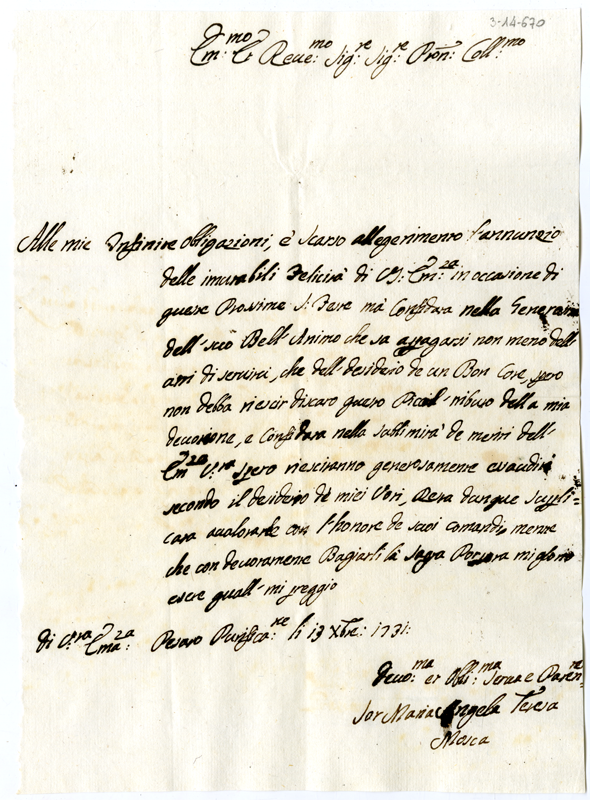 3-14-670
Em:mo Et Reue:mo Sig:re Sig:re Pron: Coll:mo
Alle mie Infinite obligazioni, è scarso allegerimento l'annunzio
delle imutabili Felicita' di V: Em:za in occasione di
queste Prossime S: Feste mà Confidata nella Generosità
dell' suo Bell' Animo che sa appagarsi non meno dell'
atti di seruitù, che dell' desiderio de un Bon Core, spero
non debba riescir discaro questo Piccol' tributo della mia
deuozione, e Confidata nella sublimità de meriti dell'
Em:za V:ra spero riesciranno generosamente esauditi
secondo il desiderio dè miei Voti, Resta dunque suppli=
cata aualorarle con l'honore de suoi comandi, mentre
che con deuotamente Bagiarli la Sagra Porpora mi glorio
essere quall' mi preggio
di V:ra Em:za Pesaro Purifica:ne li 13 Xbre: 1731:
Deuo:ma et Obli:ma Serua e Paren:te
Sor Maria Angela Teresa
Mosca